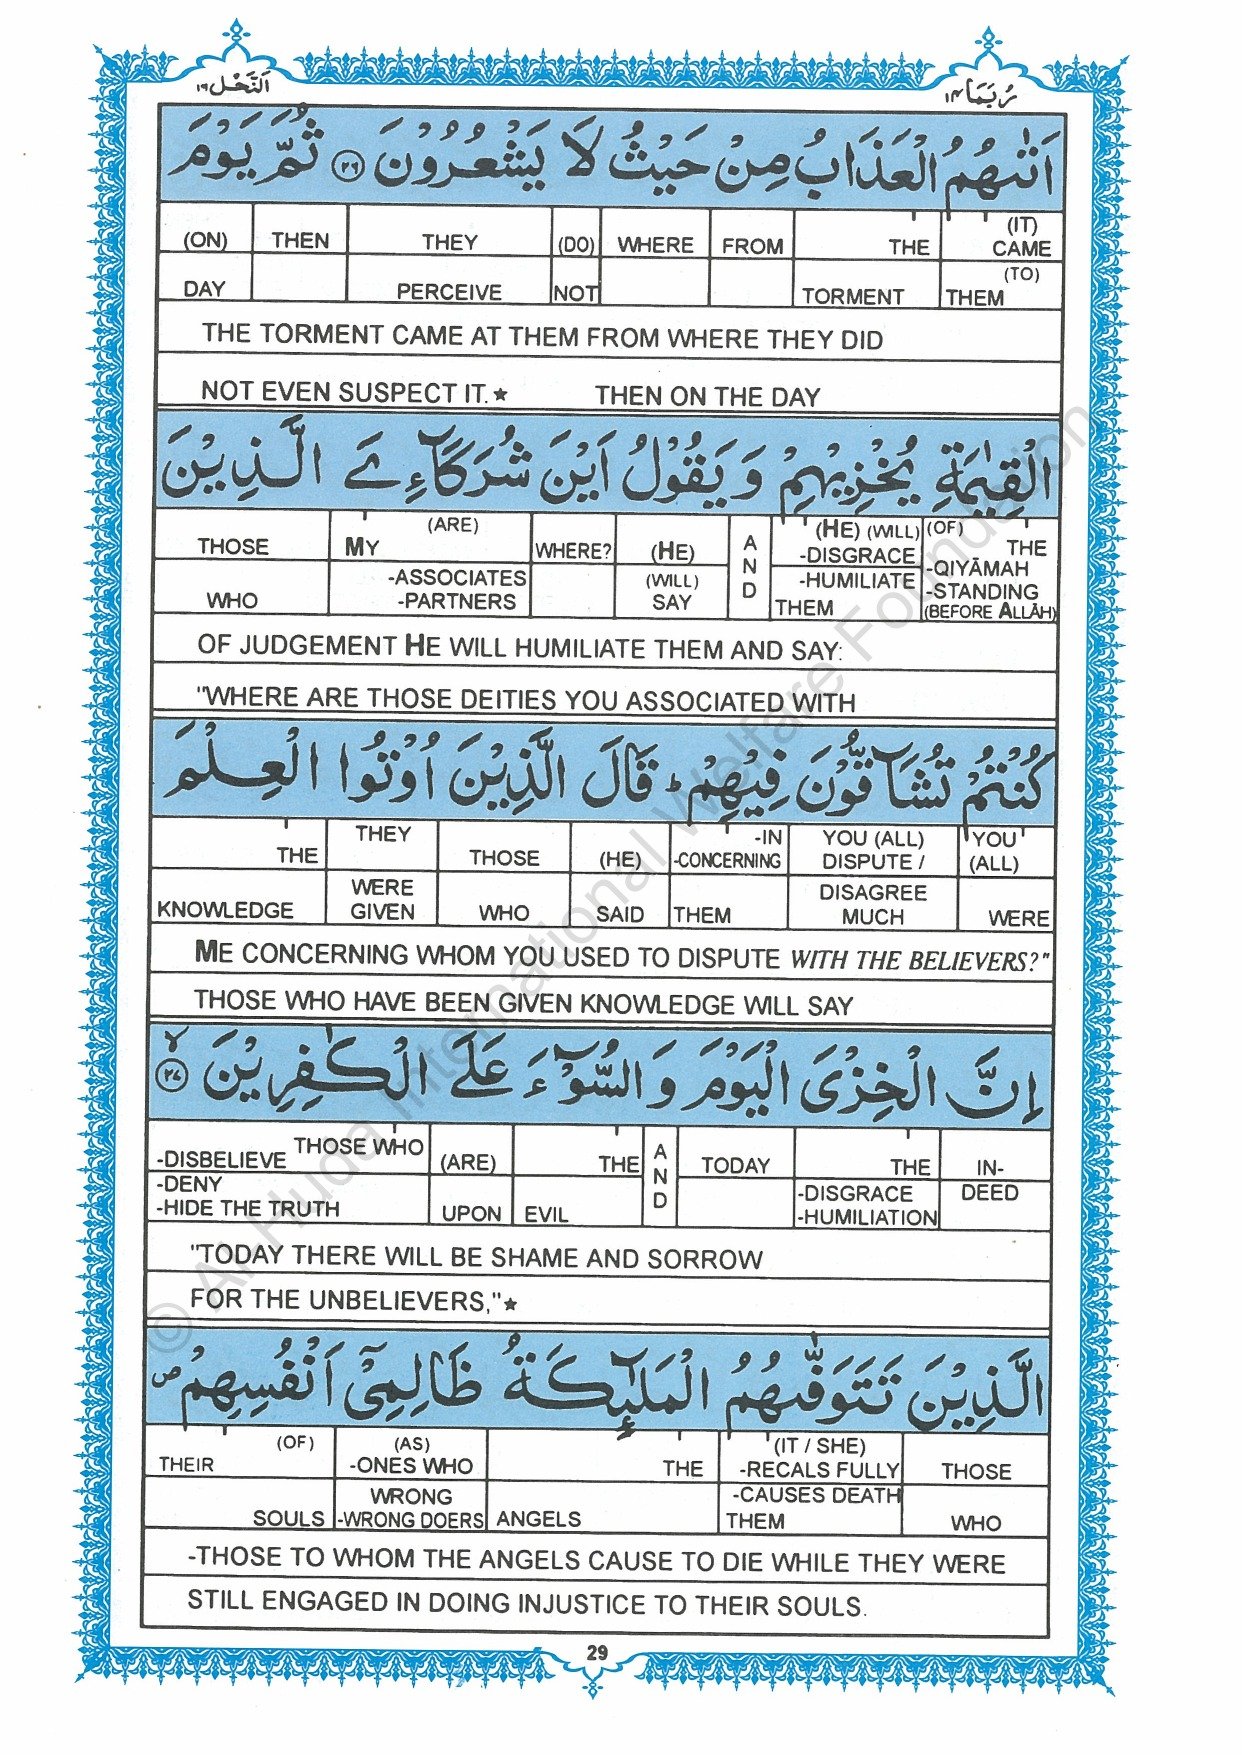 رُبَمَا ١٤
اَلنَّحْل ١٦
اَتٰىهُمُ الْعَذَابُ مِنْ حَيْثُ لَا يَشْعُرُوْنَ ٢٦ ثُمَّ يَوْمَ
(ON) THEN THEY (DO) WHERE FROM THE (IT) CAME
DAY PERCEIVE NOT TORMENT (TO) THEM
THE TORMENT CAME AT THEM FROM WHERE THEY DID
NOT EVEN SUSPECT IT.★ THEN ON THE DAY
الْقِيٰمَةِ يُخْزِيْهِمْ وَيَقُوْلُ اَيْنَ شُرَكَآءِىَ الَّذِيْنَ
THOSE MY (ARE) WHERE? (HE) AND (HE) (WILL) -DISGRACE (OF) THE
WHO -ASSOCIATES -PARTNERS (WILL) SAY -HUMILIATE THEM -QIYĀMAH -STANDING (BEFORE ALLĀH)
OF JUDGEMENT HE WILL HUMILIATE THEM AND SAY:
"WHERE ARE THOSE DEITIES YOU ASSOCIATED WITH
كُنْتُمْ تُشَآقُّوْنَ فِيْهِمْ ؕ قَالَ الَّذِيْنَ اُوْتُوا الْعِلْمَ
THE THEY THOSE (HE) -IN -CONCERNING YOU (ALL) DISPUTE / YOU (ALL)
KNOWLEDGE WERE GIVEN WHO SAID THEM DISAGREE MUCH WERE
ME CONCERNING WHOM YOU USED TO DISPUTE WITH THE BELIEVERS?"
THOSE WHO HAVE BEEN GIVEN KNOWLEDGE WILL SAY
اِنَّ الْخِزْىَ الْيَوْمَ وَالسُّوْٓءَ عَلَى الْكٰفِرِيْنَ ٢٧ ۙ
-DISBELIEVE THOSE WHO (ARE) THE AND TODAY THE IN-
-DENY -HIDE THE TRUTH UPON EVIL -DISGRACE -HUMILIATION DEED
"TODAY THERE WILL BE SHAME AND SORROW
FOR THE UNBELIEVERS,"★
الَّذِيْنَ تَتَوَفّٰىهُمُ الْمَلٰٓئِكَةُ ظَالِمِىْٓ اَنْفُسِهِمْ ۖ
THEIR (OF) (AS) -ONES WHO THE (IT / SHE) -RECALS FULLY THOSE
SOULS WRONG -WRONG DOERS ANGELS -CAUSES DEATH THEM WHO
-THOSE TO WHOM THE ANGELS CAUSE TO DIE WHILE THEY WERE
STILL ENGAGED IN DOING INJUSTICE TO THEIR SOULS.
29
© Al Huda International Welfare Foundation